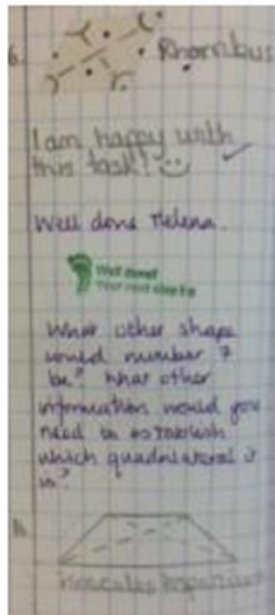 6.
Rhombus
I am happy with
this task!
Well done Helena.
Well done!
Your next step is
What other shape
could number 7
be? What other
information would you
need to establish
which quadrilateral it
is?
isosceles trapezium